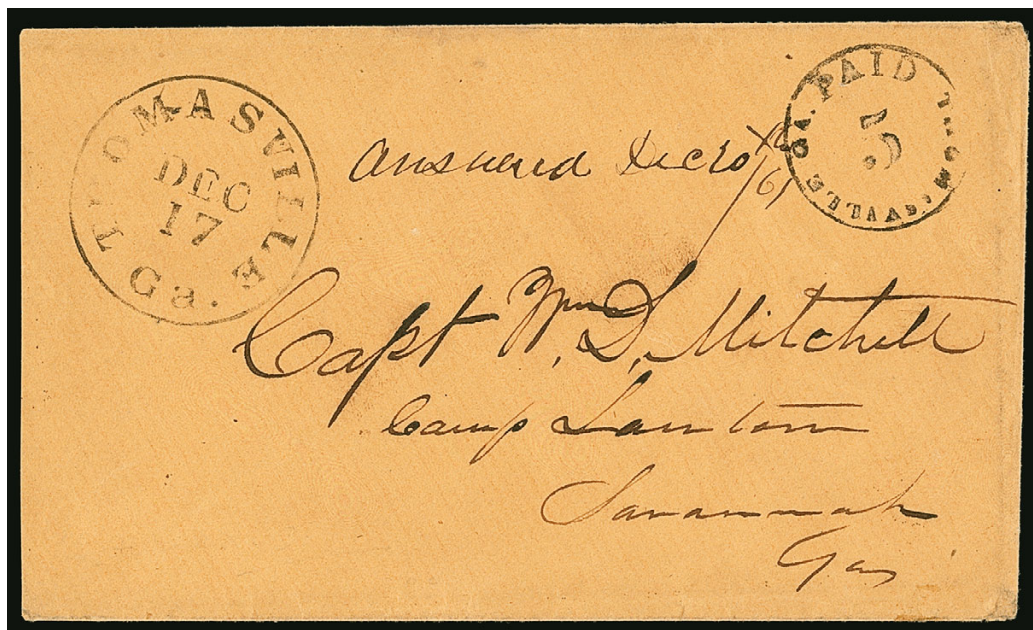 THOMASVILLE Ga.
DEC
17
PAID
5
THOMASVILLE GA.
answered Dec 20th/61
Capt Wm. D. Mitchell
Camp Lawton
Savannah
Ga